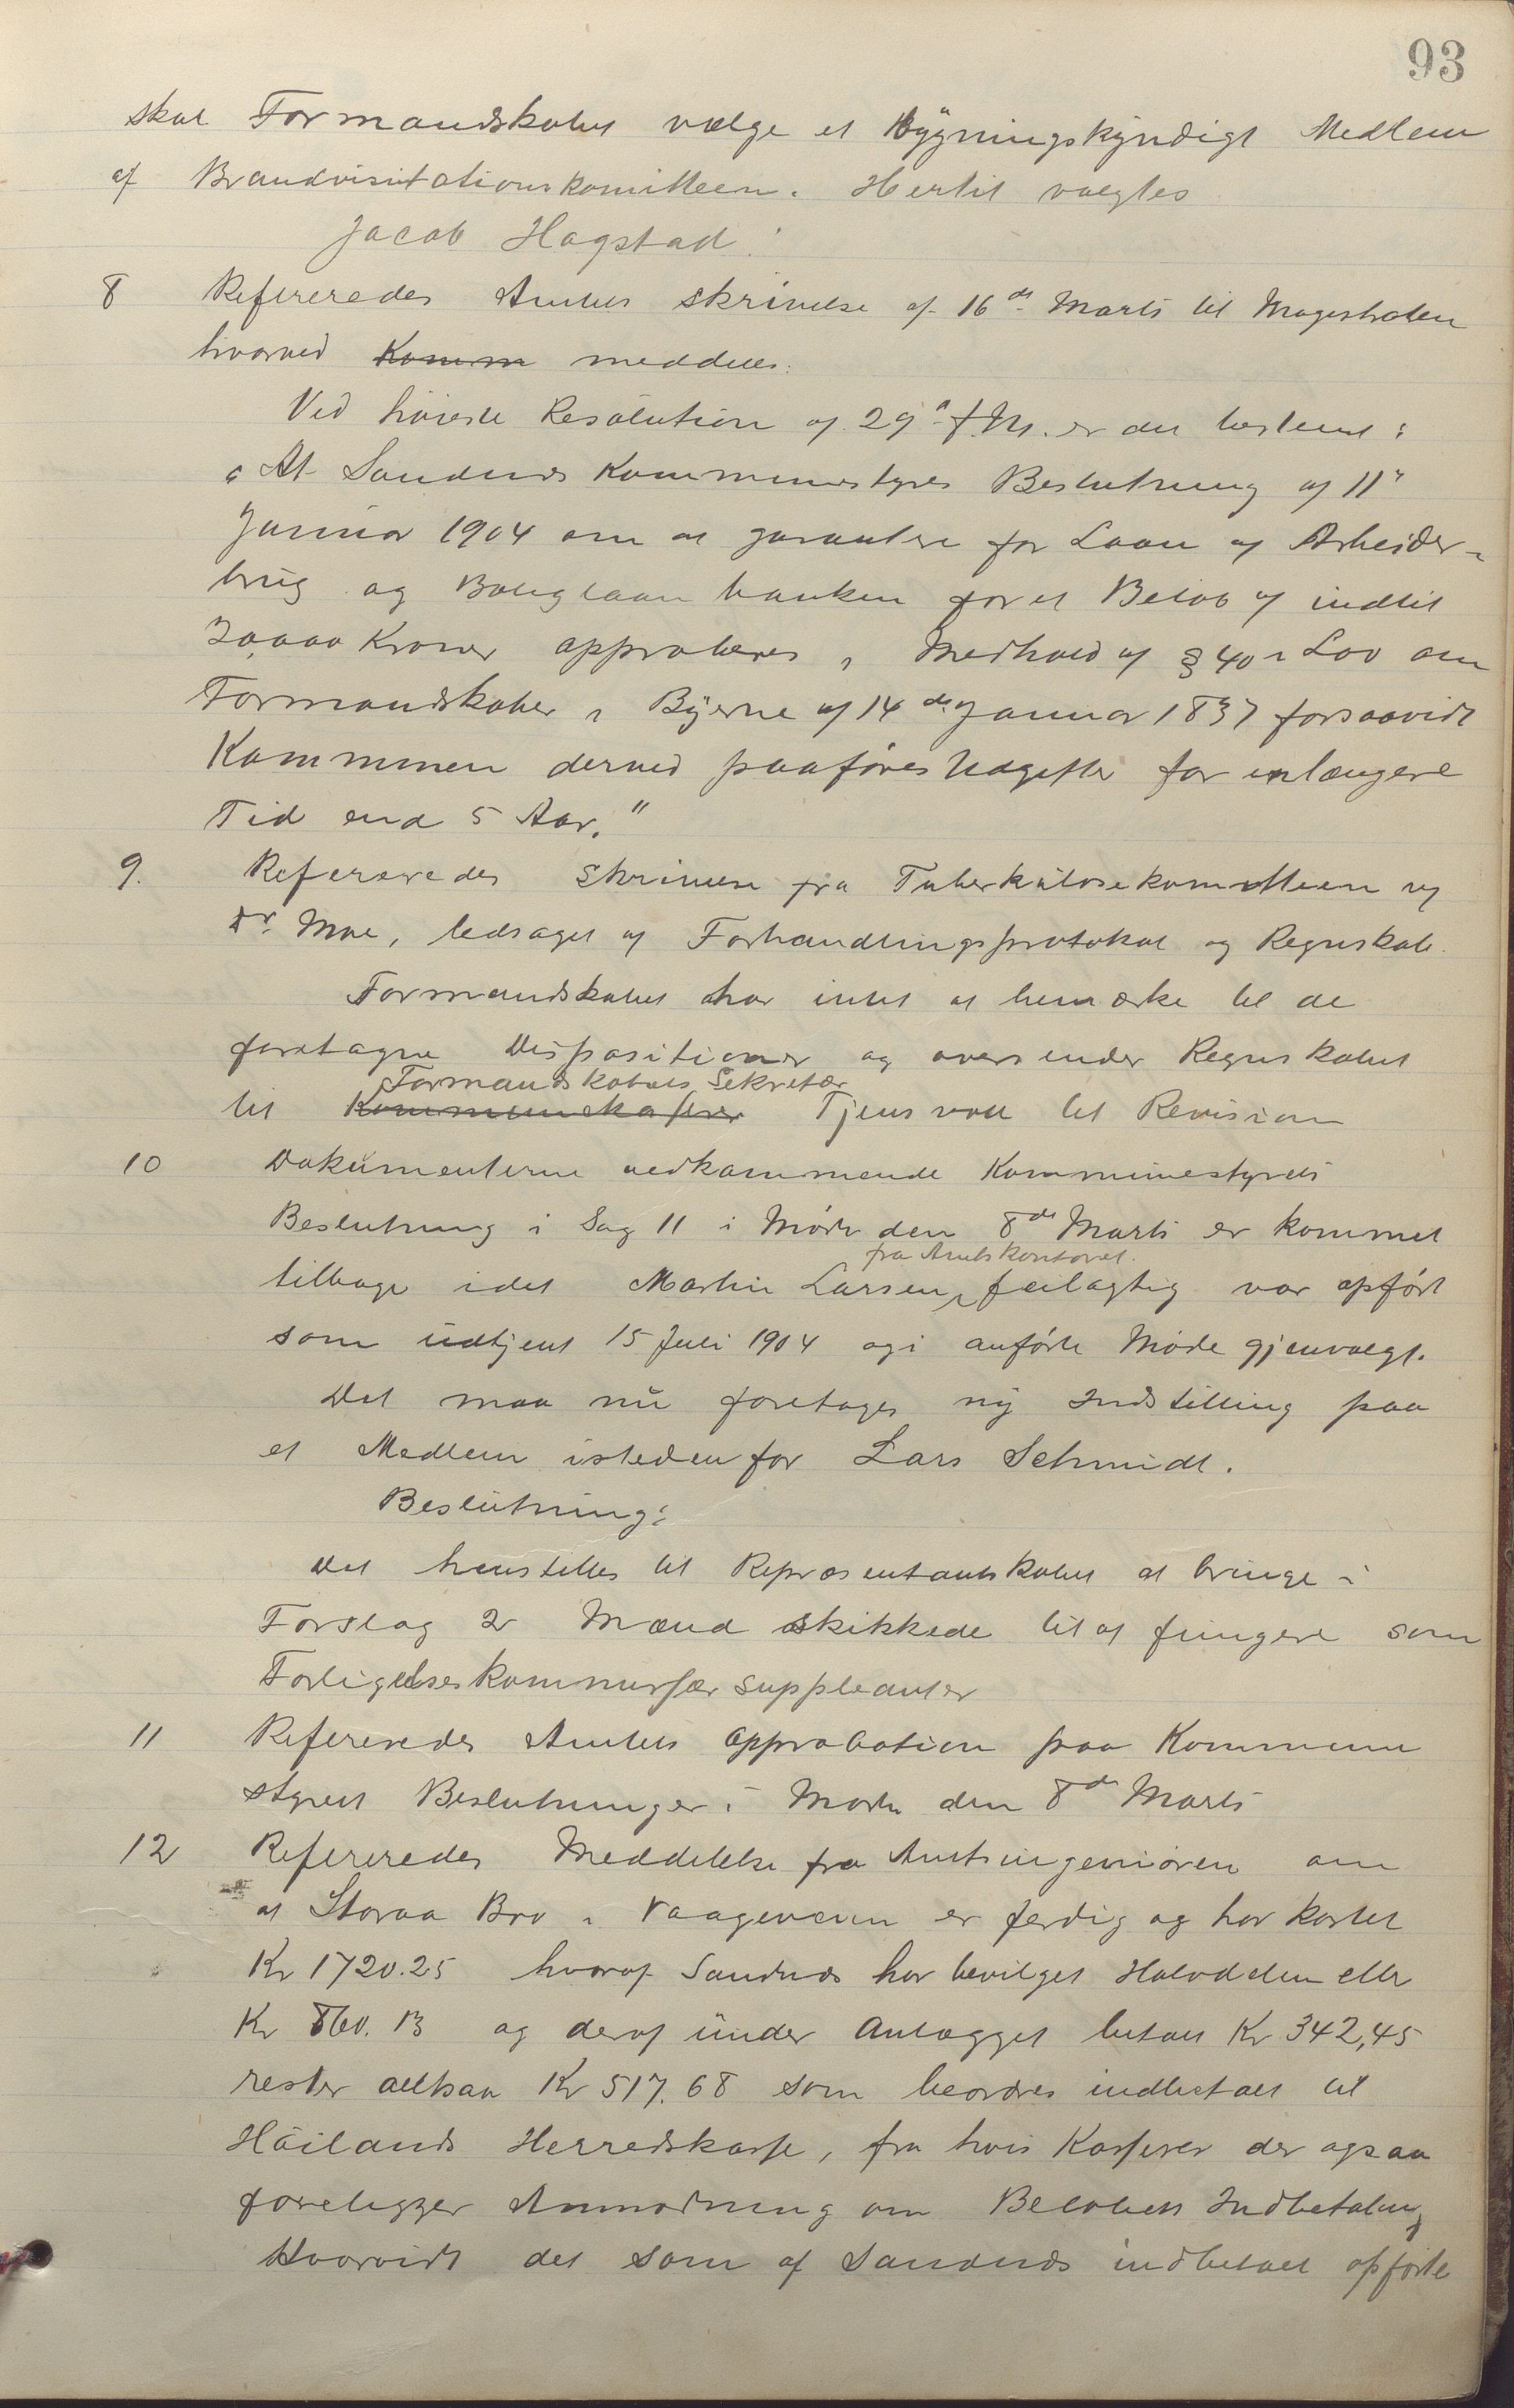 93
skal Formandskabet vælge et bygningskyndigt Medlem
af Brandvisitationskomitteen. Hertil valgtes
Jacob Hagstad.
8 Refereredes Amtets skrivelse af 16de Marts til Magistraten
hvorved Komm meddeles:
Ved høieste Resolution af 29de f.M. er det bestemt:
"At Sandnes Kommunestyres Beslutning af 11te
Januar 1904 om at garantere for Laan af Arbeider-
brug og Boliglaanbanken for et Beløb af indtil
20,000 Kroner approberes i Medhold af § 40 i Lov om
Formandskaber i Byerne af 14de Januar 1837 forsaavidt
Kommunen derved paaføres Udgifter for en længere
Tid end 5 Aar."
9. Refereredes skrivelse fra Tuberkulosekomitteen v/
Dr. Moe, ledsaget af Forhandlingsprotokol og Regnskab.
Formandskabet har intet at bemærke til de
foretagne Dispositioner og oversender Regnskabet
Formandskabets Sekretær
til Kommunekasserer Tjensvoll til Revision
10 Dokumenterne vedkommende Kommunestyrets
Beslutning i Sag 11 i Møde den 8de Marts er kommet
fra Amtskontoret.
tilbage idet Martin Larsen feilagtig var opført
som udtjent 15 Juli 1904 og i anførte Møde gjenvalgt.
Det maa nu foretages ny Indstilling paa
et Medlem istedenfor Lars Schmidt.
Beslutning:
Det henstilles til Repræsentantskabet at bringe i
Forslag 2 Mænd skikkede til at fungere som
Forligelseskommissær suppleanter
11 Refereredes Amtets Approbation paa Kommune
styrets Beslutninger i Møde den 8de Marts
12 Refereredes Meddelelse fra Amtsingeniøren om
at Storaa Bro i Vaagenveien er færdig og har kostet
Kr 1720.25 hvoraf Sandnes har bevilget Halvdelen eller
Kr 860.13 og deraf under Anlægget betalt Kr 342,45
rester altsaa Kr 517.68 som beordres indbetalt til
Høilands Herredskasse, fra hvis Kasserer der ogsaa
foreligger Anmodning om Beløbets Indbetaling
Hvorvidt det som af Sandnes indbetalt opførte